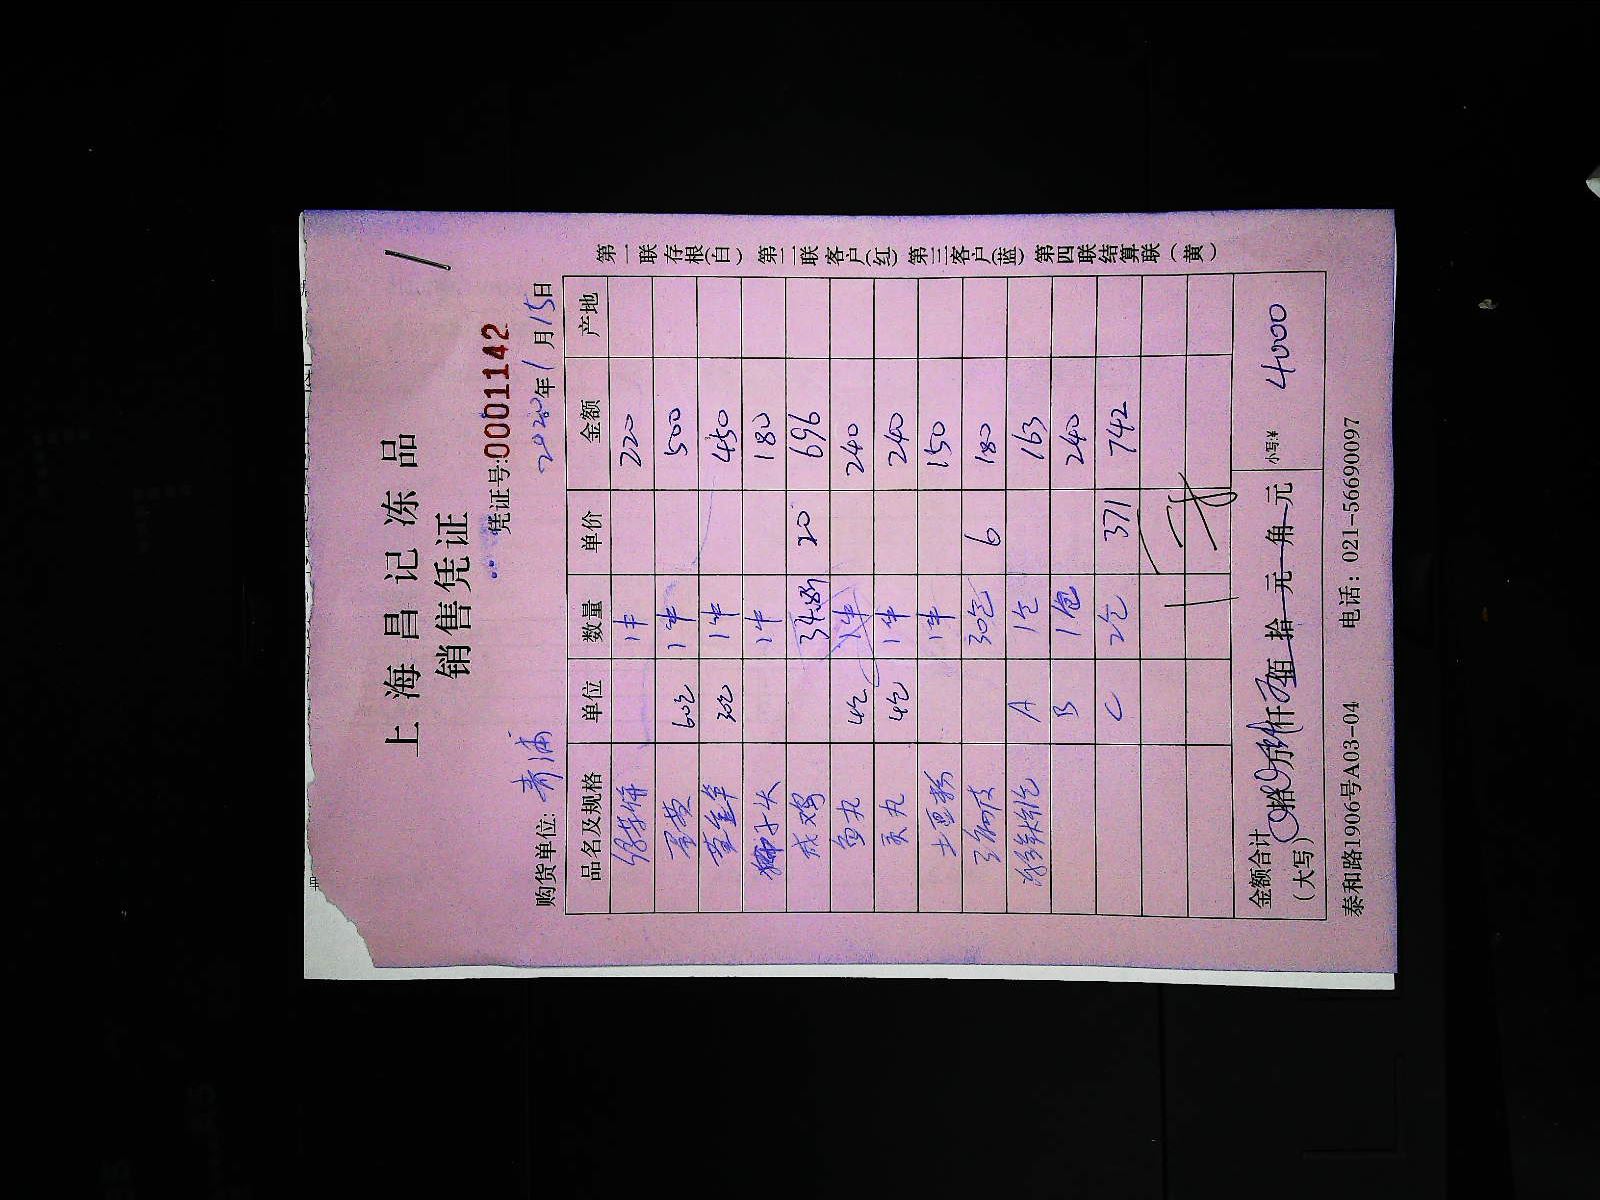 上海昌记冻品
销售凭证
凭证号:0001142
购货单位: 青浦 2020年1月15日
品名及规格 单位 数量 单价 金额 产地
1中 220
60包 1中 500
30包 1中 450
狮子头 1中 180
成鸡 34.8斤 20 696
鱼丸 4包 1中 240
4包 1中 240
土豆粉 1中 150
30包 6 180
A 1包 163
B 1包 240
C 2包 371 742
金额合计 拾 万 仟 佰 拾 元 角 元 小写:¥ 4000
(大写)
泰和路1906号A03-04 电话: 021-56690097
第一联存根(白) 第二联客户(红) 第三客户(蓝) 第四联结算联(黄)